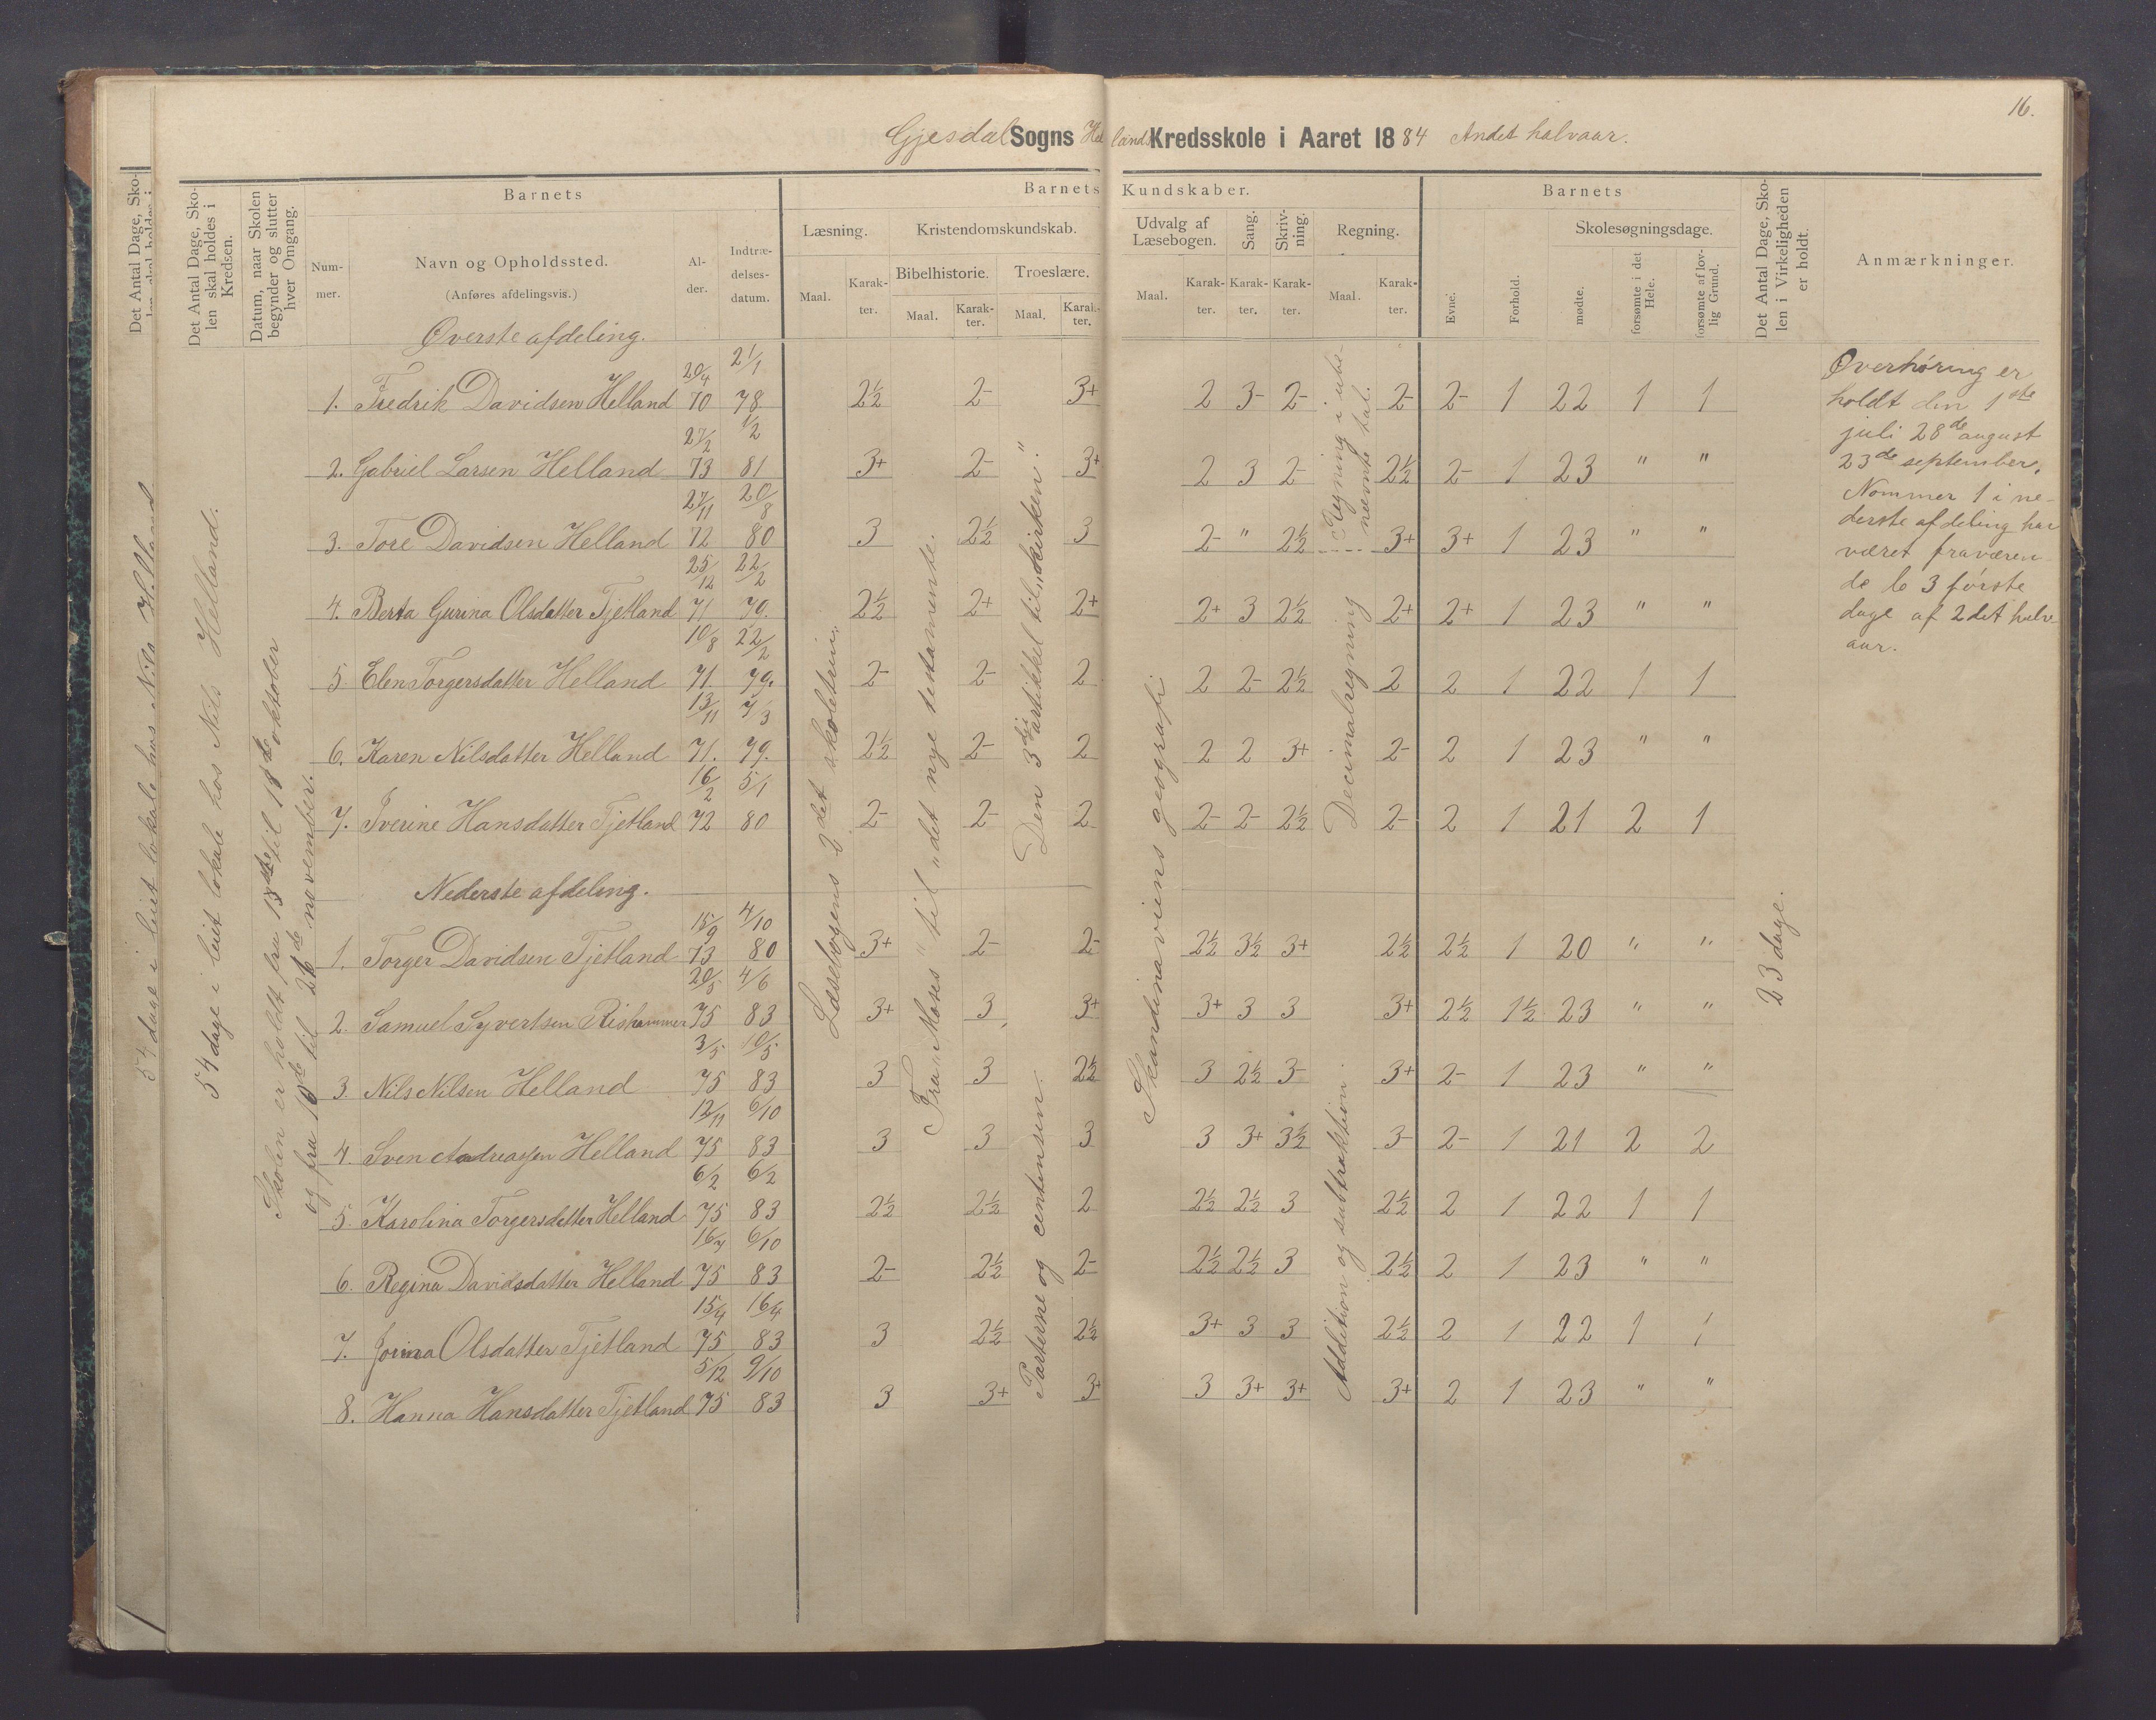 16.
Gjesdal Sogns Hellands Kredsskole i Aaret 1884 Andet halvaar.
Det Antal Dage, Sko-
54 dage i leiet lokale hos Nils
Det Antal Dage, Sko-
len skal holdes i
Kredsen.
Datum, naar Skolen
begynder og slutter
hver Omgang.
Num-
mer.
Barnets
Navn og Opholdssted.
(Anføres afdelingsvis.)
Al-
der.
Indtræ-
delses-
datum.
Barnets Kundskaber.
Læsning.
Maal.
Karak-
ter.
Kristendomskundskab.
Bibelhistorie.
Maal.
Karak-
ter.
Troeslære.
Maal.
Karak-
ter.
Udvalg af
Læsebogen.
Maal.
Karak-
ter.
Sang.
Karak-
ter.
Skriv-
ning.
Karak-
ter.
Regning.
Maal.
Karak-
ter.
Barnets
Evne.
Forhold.
Skolesøgningsdage.
mødte.
forsømte i det
Hele.
forsømte af lov-
lig Grund.
Det Antal Dage, Sko-
len i Virkeligheden
er holdt.
Anmærkninger.
54 dage i leiet lokale hos Nils Helland.
Skolen er holdt fra 13de til 18de oktober
og fra 10de til 26de november.
Læsebogens 3det skoletrin.
Fra "Moses" til "det nye testamente.
Den 3die artikkel til "kirken".
Parterne og centensen.
Skandinaviens geografi
Regning i ube-
nævnte tal.
Decimalregning
Addition og subtraktion.
23 dage.
Øverste afdeling.
20/4 21/1
1. Fredrik Davidsen Helland 70 78 2½ 2- 3+ 2 3- 2- 2- 2- 1 22 1 1
27/2 1/2
2. Gabriel Larsen Helland 73 81 3+ 2- 3+ 2 3 2- 2½ 2- 1 23 " "
27/11 20/8
3. Tore Davidsen Helland 72 80 3 2½ 3 2- " 2½ 3+ 3+ 1 23 " "
25/12 22/2
4. Berta Gurina Olsdatter Tjetland 71 79. 2½ 2+ 2+ 2+ 3 2½ 2+ 2+ 1 23 " "
10/8 22/2
5. Elen Torgersdatter Helland 71 79. 2- 2- 2 2 2- 2½ 2 2 1 22 1 1
13/11 7/3
6. Karen Nilsdatter Helland 71. 79. 2½ 2- 2 2 2 3+ 2- 2 1 23 " "
16/2 5/1
7. Iverine Hansdatter Tjetland 72 80 2- 2- 2 2- 2- 2½ 2- 2 1 21 2 1
Nederste afdeling.
15/9 4/10
1. Torger Davidsen Tjetland 73 80 3+ 2- 2- 2½ 3½ 3+ 2½ 2½ 1 20 " "
20/5 4/6
2. Samuel Syvertsen Rishammer 75 83 3+ 3 3+ 3+ 3 3 3+ 2½ 1½ 23 " "
3/5 10/5
3. Nils Nilsen Helland 75 83 3 3 2½ 3 2½ 3- 3+ 2- 1 23 " "
12/11 6/10
4. Sven Andreassen Helland 75 83 3 3 3 3 3+ 3½ 3- 2- 1 21 2 2
6/2 6/2
5. Karolina Torgersdatter Helland 75 83 2½ 2½ 2 2½ 2½ 3 2½ 2 1 22 1 1
16/7 6/10
6. Regina Davidsdatter Helland 75 83 2- 2½ 2- 2½ 2½ 3 2½ 2 1 23 " "
15/4 16/4
7. Jorina Olsdatter Tjetland 75 83 3 2½ 2½ 3+ 3 3 2½ 2 1 22 1 1
5/12 9/10
8. Hanna Hansdatter Tjetland 75 83 3 3+ 3+ 3 3+ 3+ 3+ 2 1 23 " "
Overhøring er
holdt den 1ste
juli 28de august
23de september.
Nommer 1 i ne-
derste afdeling har
været fraværen-
de 3 første
dage af 2det halv-
aar.